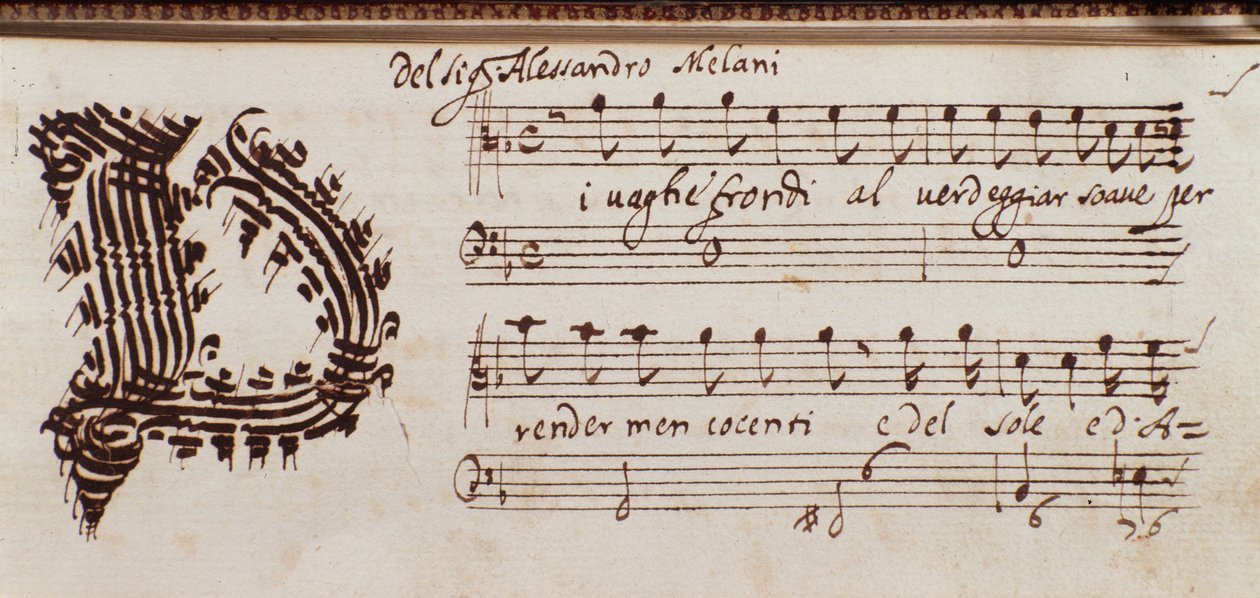 Del Sig: Alessandro Melani
Di vaghe frondi al verdeggiar soave per
render men cocenti e del sole e d'A=
6
6 7 6